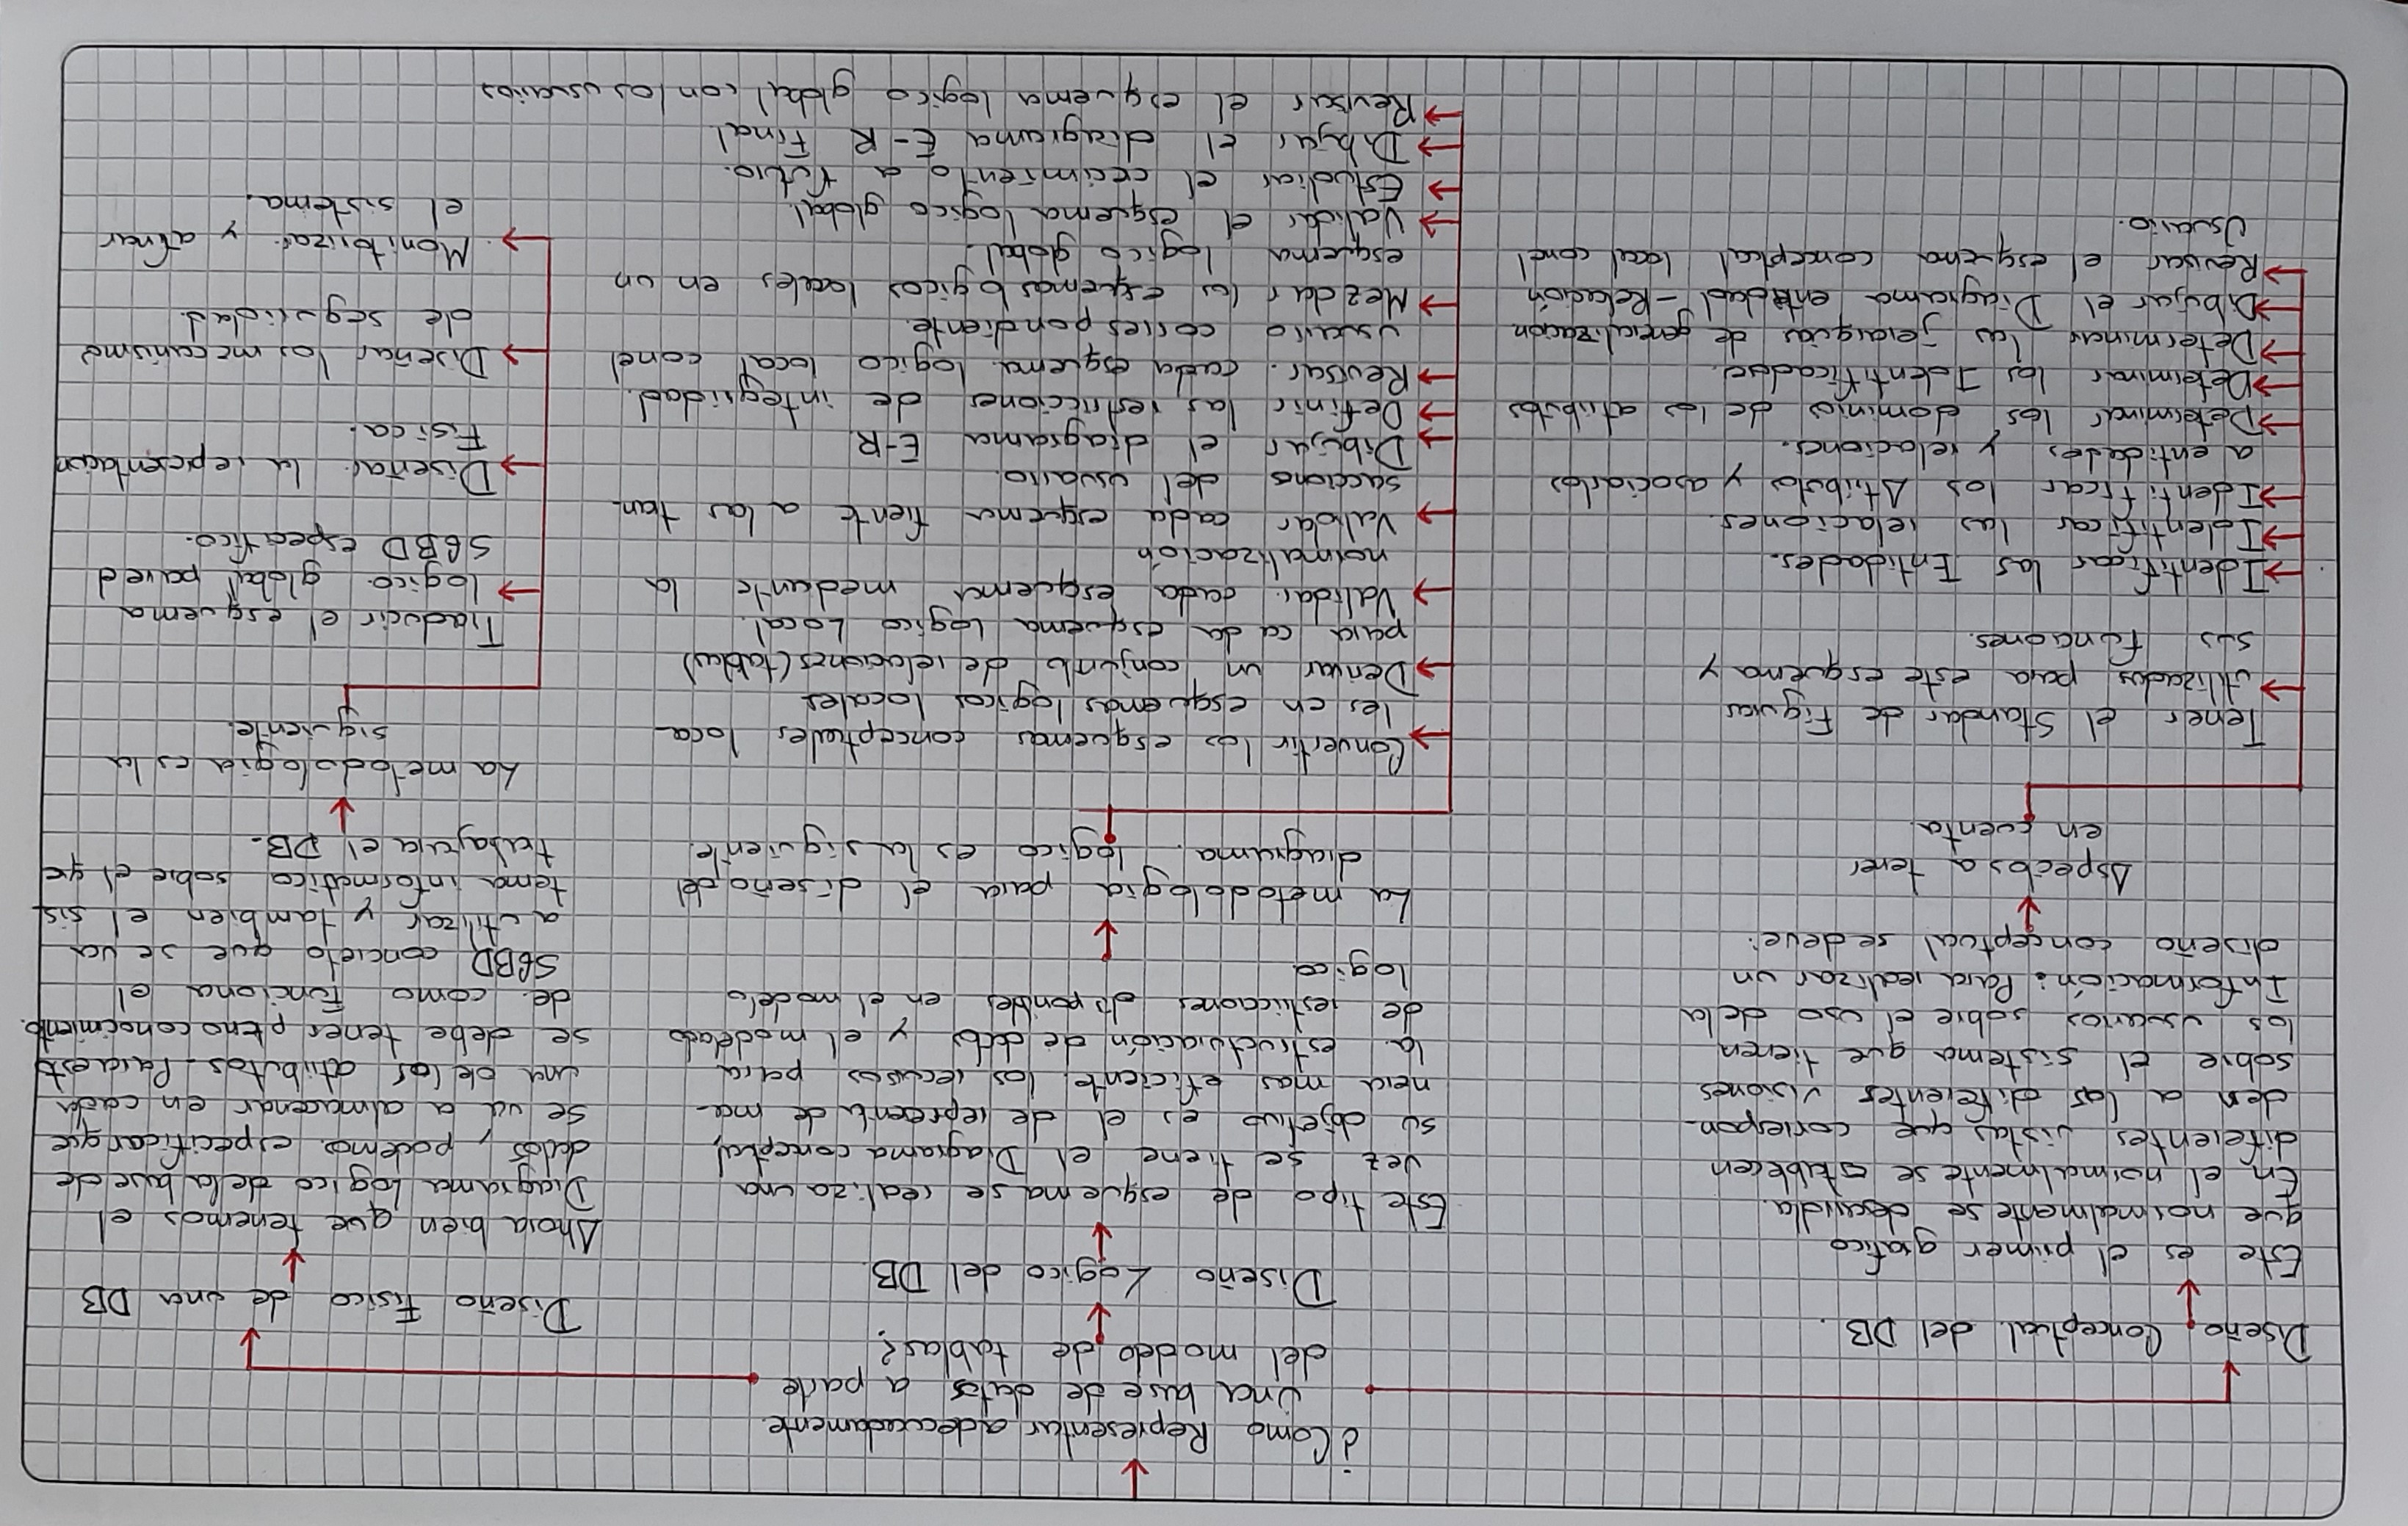 ¿Como Representar adecuadamente
una base de datos a parte
del modelo de tablas?
Diseño Conceptual del DB.
Este es el primer grafico
que normalmente se desarrolla.
En el normalmente se establecen
diferentes vistas que correspon-
den a las diferentes visiones
sobre el sistema que tienen
los usuarios sobre el uso de la
Información: Para realizar un
diseño conceptual se deve:
Aspectos a tener
en cuenta.
Tener el Standar de Figuras
utilizadas para este esquema y
sus funciones.
Identificar las Entidades.
Identificar las relaciones.
Identificar los Atributos y asociarlos
a entidades y relaciones.
Determinar los dominios de los atributos
Determinar los Identificadores.
Determinar las jerarquias de generalizacion
Dibujar el Diagrama entidad-Relación
Revisar el esquema conceptual local con el
Usuario.
Diseño Logico del DB.
Este tipo de esquema se realiza una
vez se tiene el Diagrama conceptual,
su objetivo es el de representa de ma-
nera mas eficiente los recursos para
la estructuración de datos y el modelado
de restricciones disponibles en el modelo
logico
La metodologia para el diseño del
diagrama logico es la siguiente.
Convertir los esquemas conceptuales loca-
les en esquemas logicos locales
Derivar un conjunto de relaciones (tablas)
para cada esquema logico Local.
Validar cada esquema mediante la
normalización
Validar cada esquema frente a las tran-
sacciones del usuario.
Dibujar el diagrama E-R.
Definir las restricciones de integridad.
Revisar cada esquema logico local con el
usuario correspondiente.
Mezclar los esquemas logicos locales en un
esquema logico global.
Validar el esquema logico global.
Estudiar el crecimiento a futuro.
Dibujar el diagrama E-R Final
Revisar el esquema logico global con los usuarios
Diseño Fisico de una DB
Ahora bien que tenemos el
Diagrama Logico de la base de
datos, podemos especificar que
se va a almacenar en cada
una de los atributos. Para esto
se debe tener pleno conocimiento
de como funciona el
SGBD concreto que se va
a utilizar y tambien el sis
tema informatico sobre el que
trabajara el DB.
La metodologia es la
siguiente.
Traducir el esquema
logico global para el
SGBD especifico.
Diseñar la representacion
Fisica.
Diseñar los mecanismo
de seguridad.
Monitorizar y afinar
el sistema.